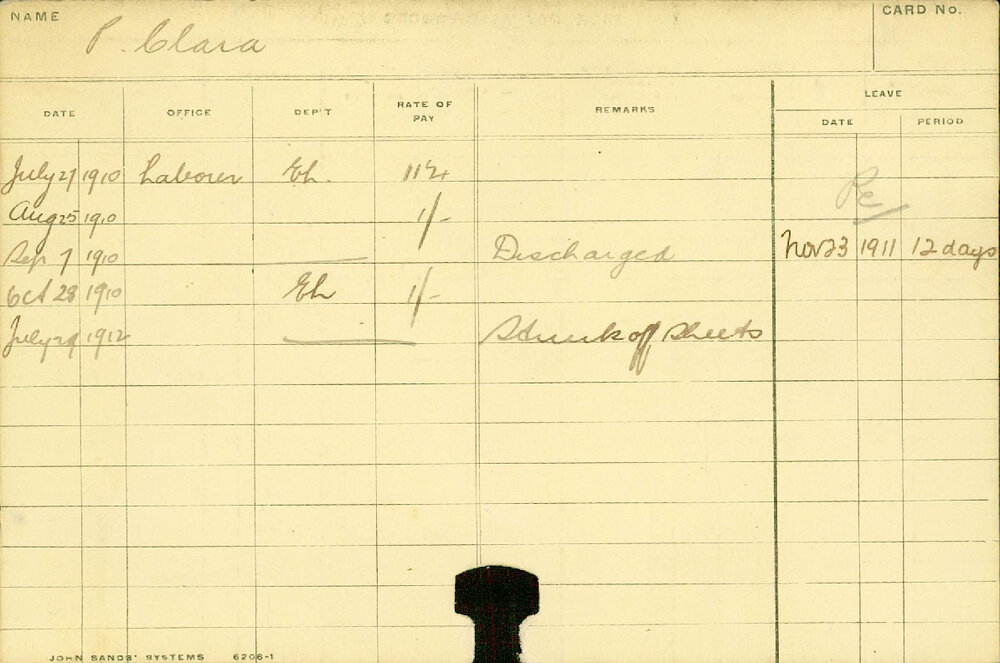 NAME P. Clara CARD No.
LEAVE
DATE OFFICE DEP'T RATE OF PAY REMARKS DATE PERIOD
July 27 1910 Laborer Eh.
Aug 25 1910 1/-
Sep 7 1910 Discharged Nov 23 1911 12 days
Oct 28 1910 Eh 1/-
July 29 1912 Struck off Sheets
JOHN SANDS' SYSTEMS 6206-1